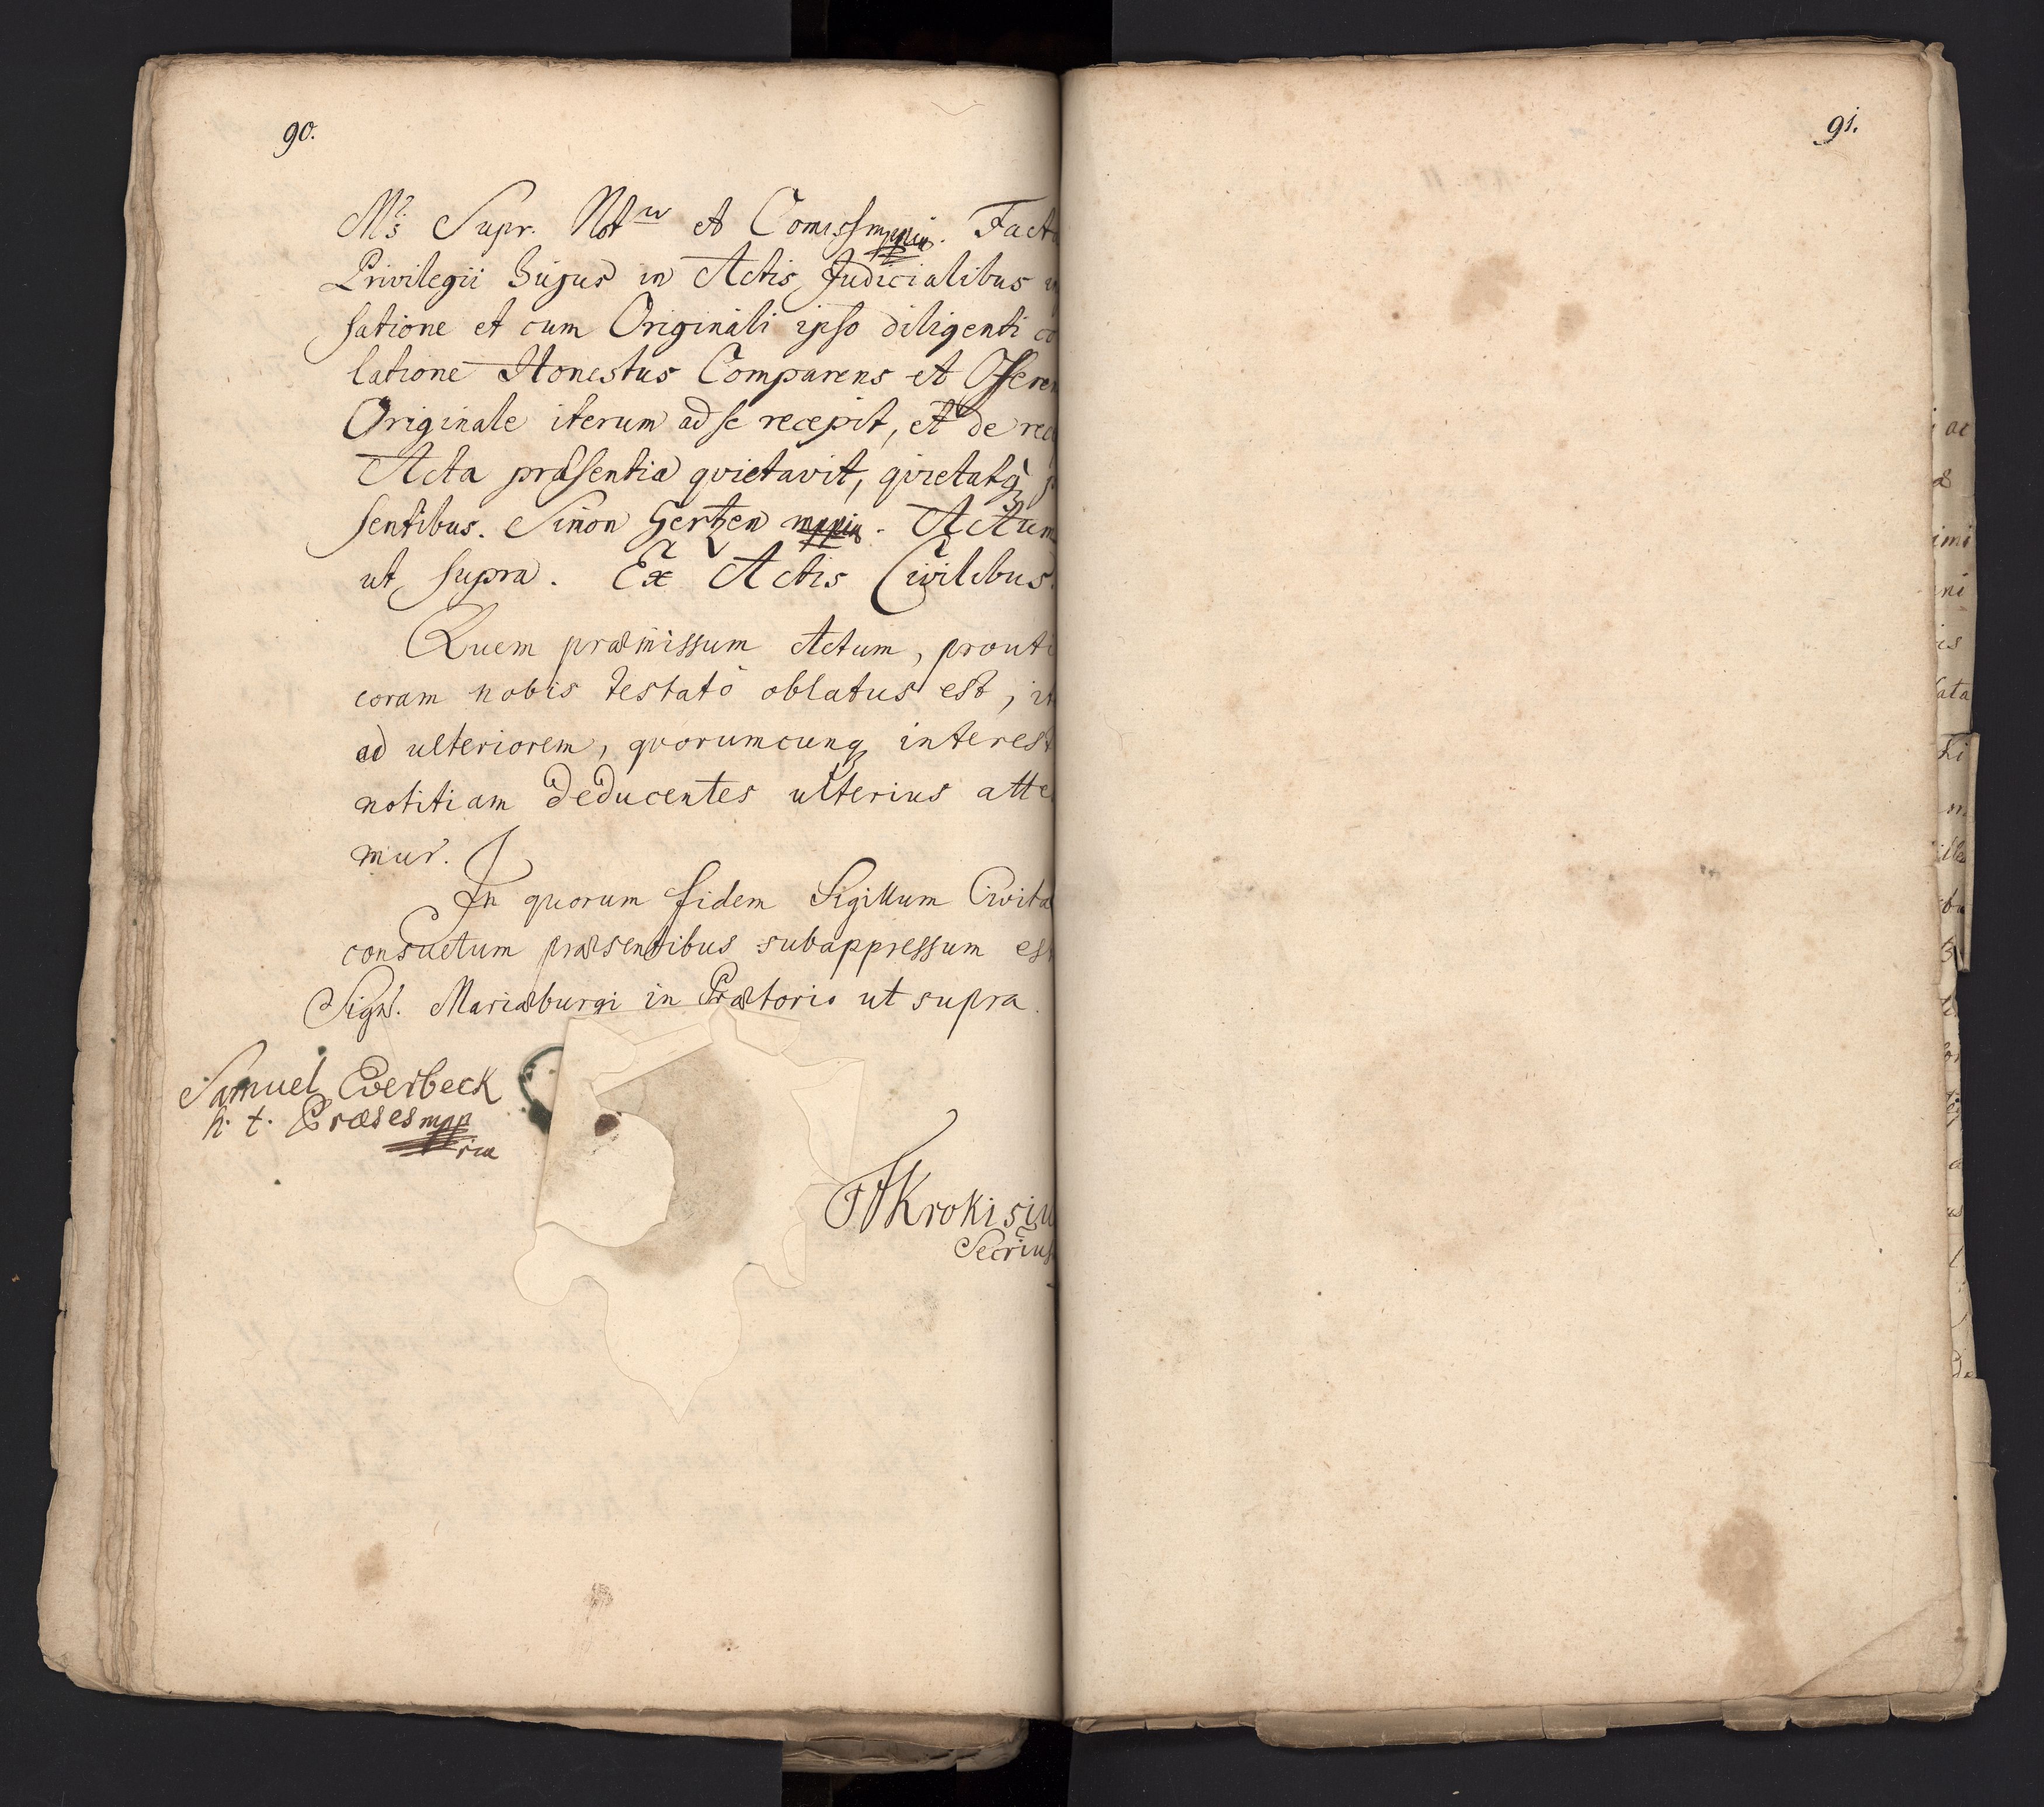 90.
Mtis Supr. Notrius et Comissmppria. Facta
Privilegii hujus in Actis Judicialibus
satione et cum Originali ipso diligenti co
latione Honestus Comparens et Offeren
Originale iterum ad se recepit, et de rec
Acta præsentia qvietavit, qvietatq
sentibus. Simon Gertzen mppria. Actum
ut supra. Ex Actis Civilibus.
Quem præmissum Actum, prouti
coram nobis testato oblatus est, it
ad ulteriorem, qvorumcunq interest
notitiam deducentes ulterius atte
mur.
In quorum fidem Sigillum Civita
consuetum præsentibus subappressum est
Sign. Mariæburgi in Prætorio ut supra.
Samuel Everbeck
h. t. Præses mpp
ria
Krokisiu
Secrius
91.